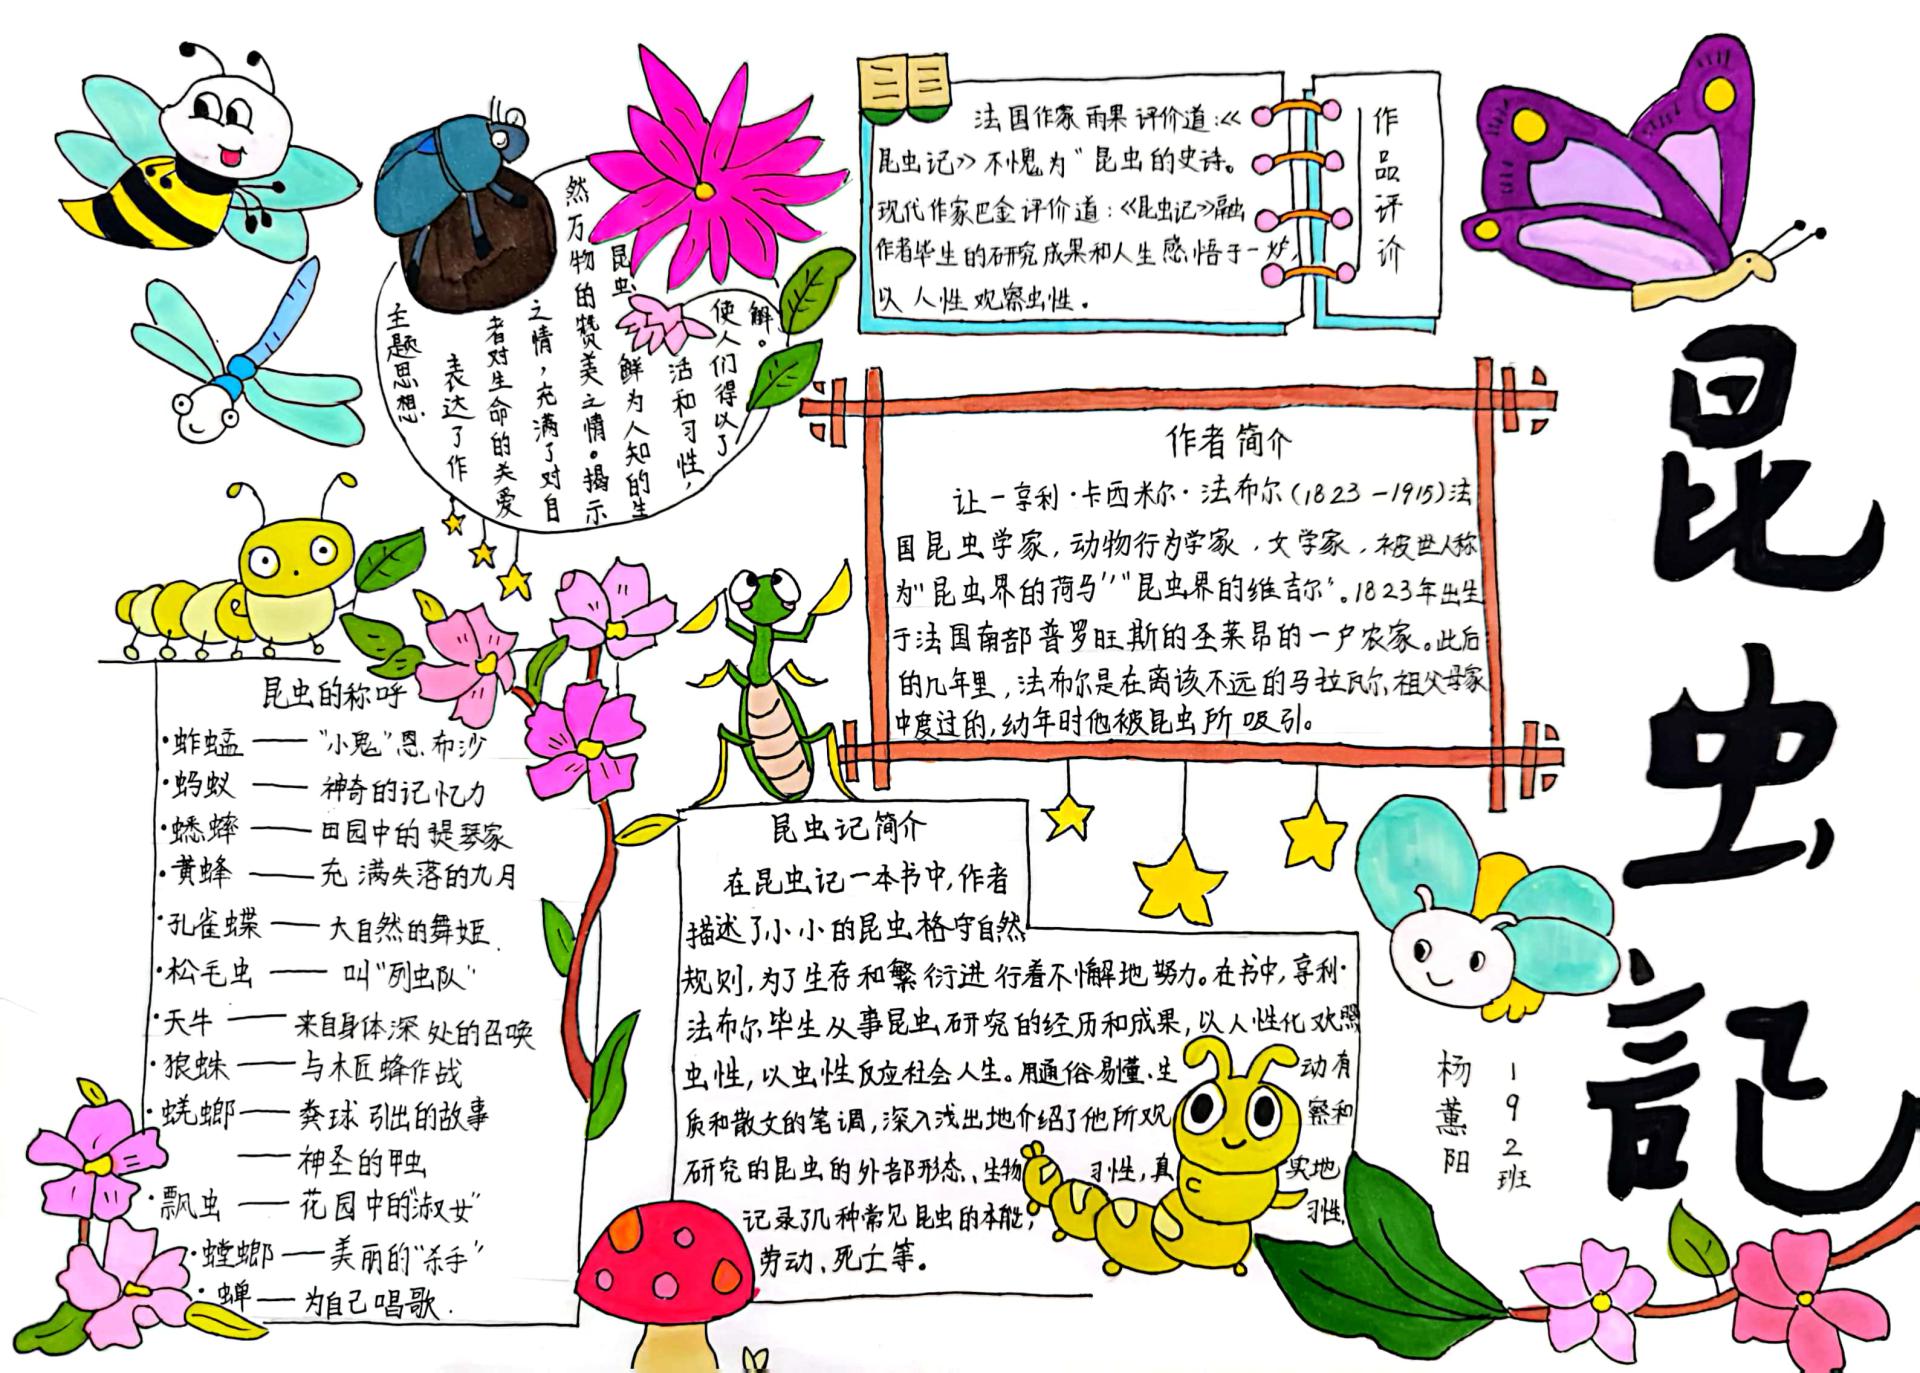 昆虫记
192班
杨薰阳
主题思想
表达了作
者对生命的关爱
之情，充满了对自
然万物的赞美之情。揭示
昆虫鲜为人知的生
活和习性，
使人们得以了
解。
作品评价
法国作家雨果评价道：《
昆虫记》不愧为“昆虫的史诗。
现代作家巴金评价道：《昆虫记》融
作者毕生的研究成果和人生感悟于一炉，
以人性观察虫性。
作者简介
让一享利·卡西米尔·法布尔(1823-1915)法
国昆虫学家，动物行为学家，文学家，被世人称
为“昆虫界的荷马”“昆虫界的维吉尔”。1823年出生
于法国南部普罗旺斯的圣莱昂的一户农家。此后
的几年里，法布尔是在离该不远的马拉瓦尔祖父母家
中度过的，幼年时他被昆虫所吸引。
昆虫的称呼
·蚱蜢——“小鬼”恩布沙
·蚂蚁——神奇的记忆力
·蟋蟀——田园中的提琴家
·黄蜂——充满失落的九月
·孔雀蝶——大自然的舞姬.
·松毛虫——叫“列虫队”
·天牛——来自身体深处的召唤
·狼蛛——与木匠蜂作战
·蜣螂——粪球引出的故事
——神圣的甲虫
·瓢虫——花园中的“淑女”
·螳螂——美丽的“杀手”
·蝉——为自己唱歌.
昆虫记简介
在昆虫记一本书中，作者
描述了小小的昆虫格守自然
规则，为了生存和繁衍进行着不懈地努力。在书中，享利·
法布尔毕生从事昆虫研究的经历和成果，以人性化欢照
虫性，以虫性反应社会人生。用通俗易懂、生动有
质和散文的笔调，深入浅出地介绍了他所观察和
研究的昆虫的外部形态、生物习性，真实地
记录了几种常见昆虫的本能，习性，
劳动、死亡等。